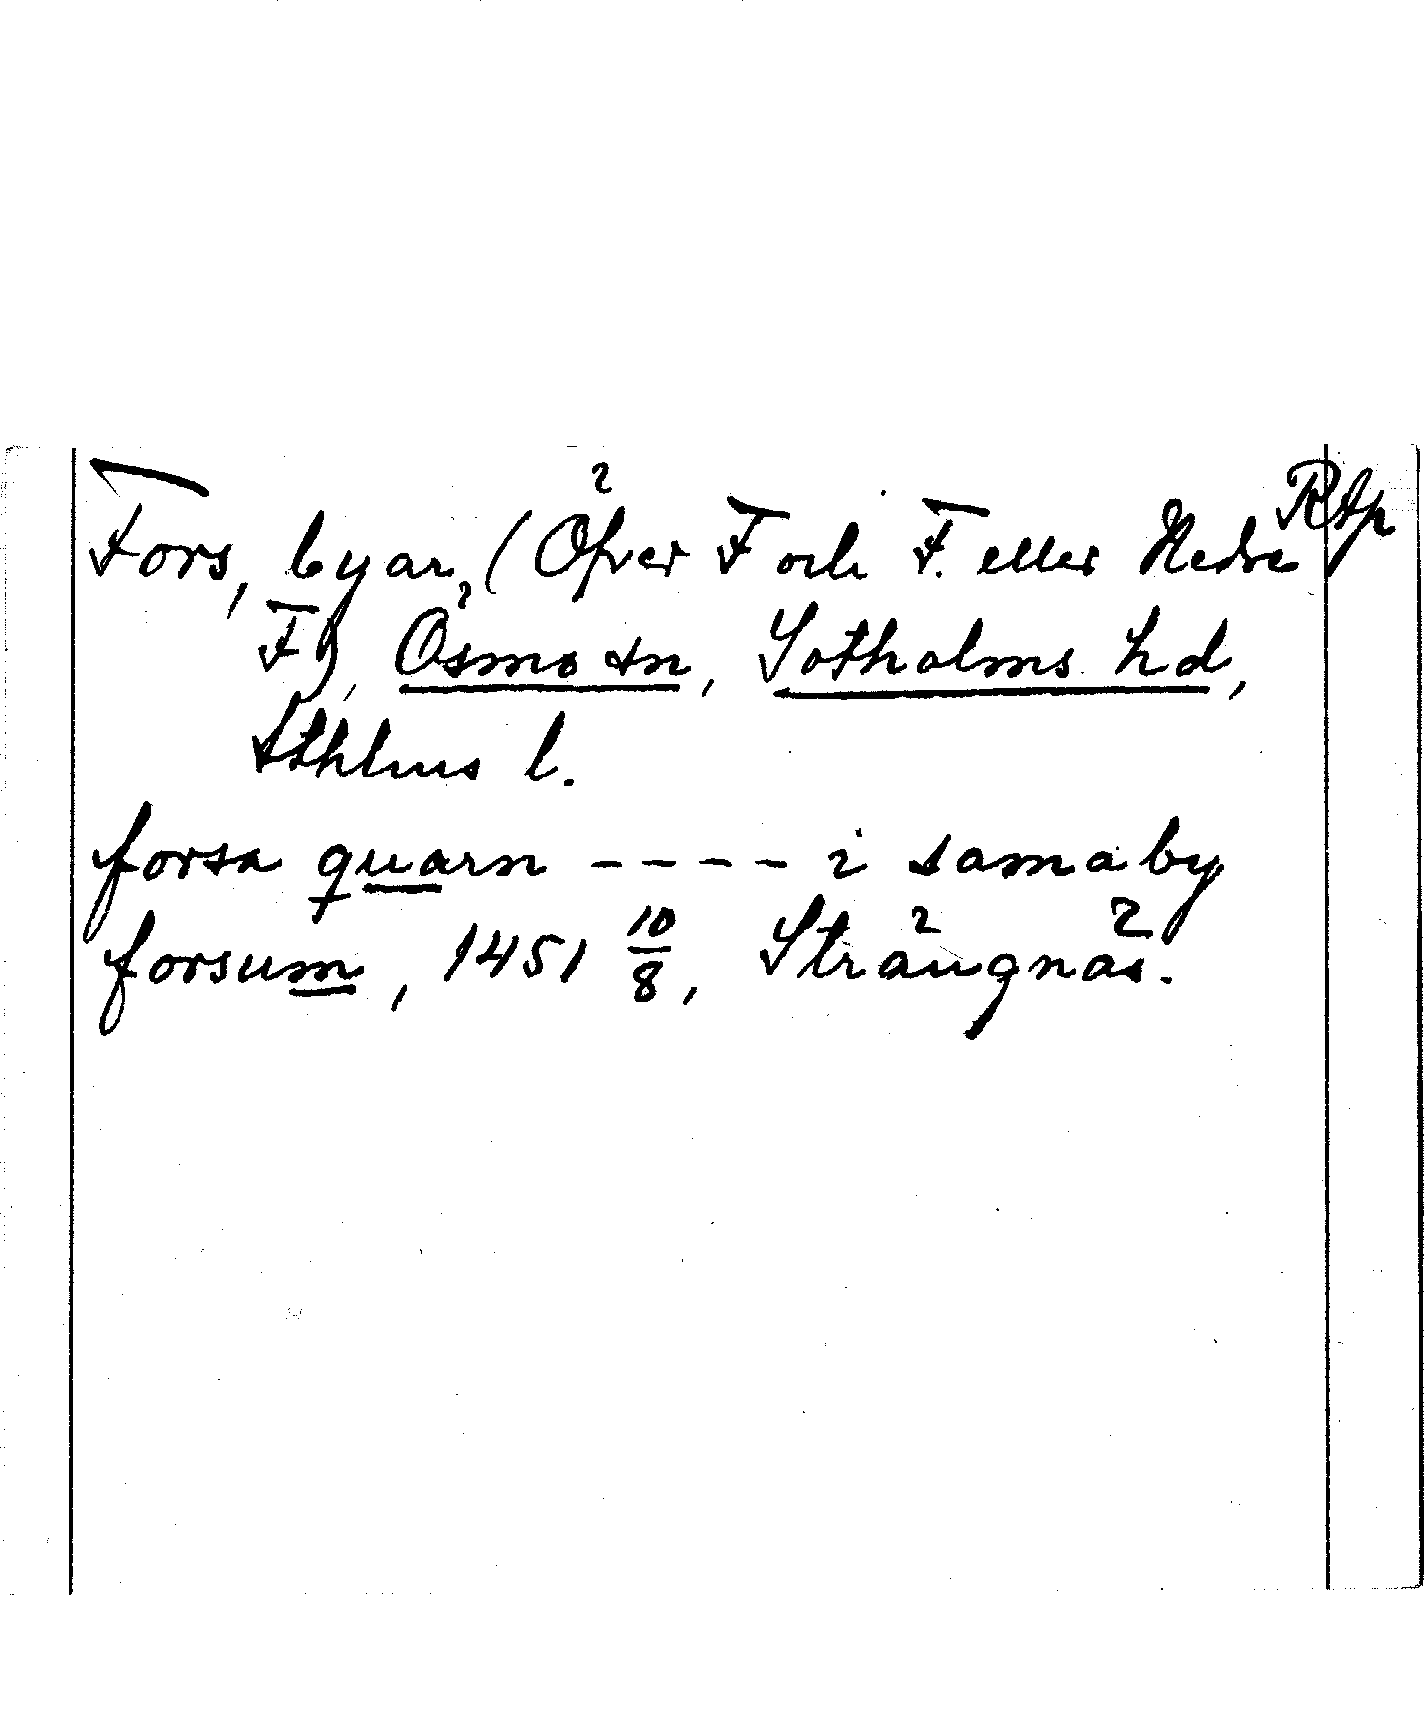 RAp
Fors, byar, (Öfver F och F. eller Nedre
F), Ösmo sn, Sotholms hd,
Sthlms l.
forsa quarn ---- i sama by
forsum, 1451 10/8, Strängnäs.